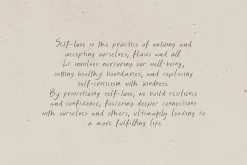 Self-love is the practice of valuing and
accepting ourselves, flaws and all.
It involves nurturing our well-being,
setting healthy boundaries, and replacing
self-criticism with kindness.
By prioritizing self-love, we build resilience
and confidence, fostering deeper connections
with ourselves and others, ultimately leading to
a more fulfilling life.